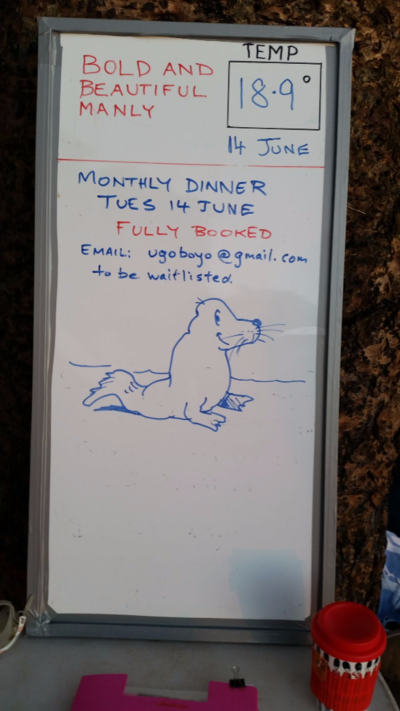 BOLD AND
BEAUTIFUL
MANLY
TEMP
18.9°
14 JUNE
MONTHLY DINNER
TUES 14 JUNE
FULLY BOOKED
EMAIL: ugoboyo@gmail.com
to be waitlisted.